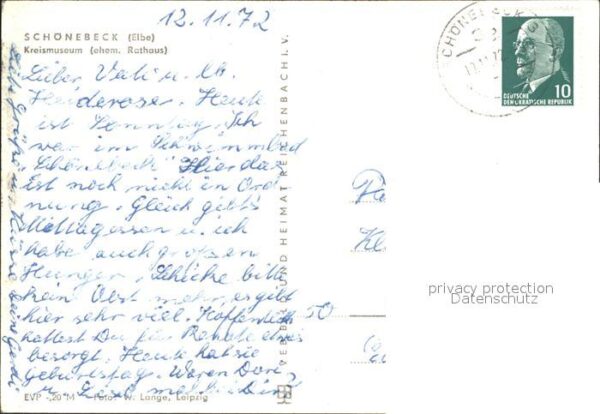 12.11.72
SCHÖNEBECK (Elbe)
Kreismuseum (ehem. Rathaus)
Lieber Vati u. lb.
Heideroser. Heute
ist Sonntag. Ich
war im Schwimmbad
Schönebeck. Hier das
ist noch nicht in Ord
nung. Gleich gibt's
Mittagessen u. ich
habe auch grossen
Hunger. Schicke bitte
kein Obst mehr, es gibt
hier sehr viel. Hoffentlich
hattest Du für Renate etwas
besorgt. Heute hat sie
Geburtstag. Waren
EVP -,20 M Foto: W. Lange, Leipzig
VERLAG BILD UND HEIMAT REICHENBACH I. V.
SCHÖNEBECK
10
DEUTSCHE
DEMOKRATISCHE REPUBLIK
50
privacy protection
Datenschutz